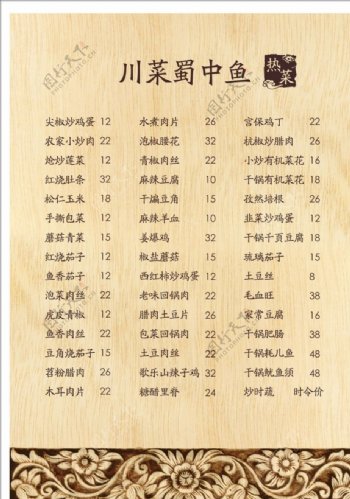 川菜蜀中鱼
热菜
尖椒炒鸡蛋 12
农家小炒肉 22
炝炒莲菜 12
红烧肚条 32
松仁玉米 18
手撕包菜 12
蘑菇青菜 15
红烧茄子 12
鱼香茄子 12
泡菜肉丝 22
虎皮青椒 12
鱼香肉丝 22
豆角烧茄子 15
苕粉腊肉 26
木耳肉片 22
水煮肉片 26
泡椒腰花 32
青椒肉丝 22
麻辣豆腐 10
干煸豆角 15
麻辣羊血 10
姜爆鸡 32
椒盐蘑菇 15
西红柿炒鸡蛋 12
老味回锅肉 22
腊肉土豆片 26
包菜回锅肉 22
土豆肉丝 22
歌乐山辣子鸡 32
糖醋里脊 24
宫保鸡丁 22
杭椒炒腊肉 26
小炒有机菜花 16
干锅有机菜花 18
孜然培根 26
韭菜炒鸡蛋 12
干锅千页豆腐 18
琉璃茄子 15
土豆丝 8
毛血旺 38
家常豆腐 16
干锅肥肠 38
干锅耗儿鱼 48
干锅鱿鱼须 48
炒时蔬 时令价